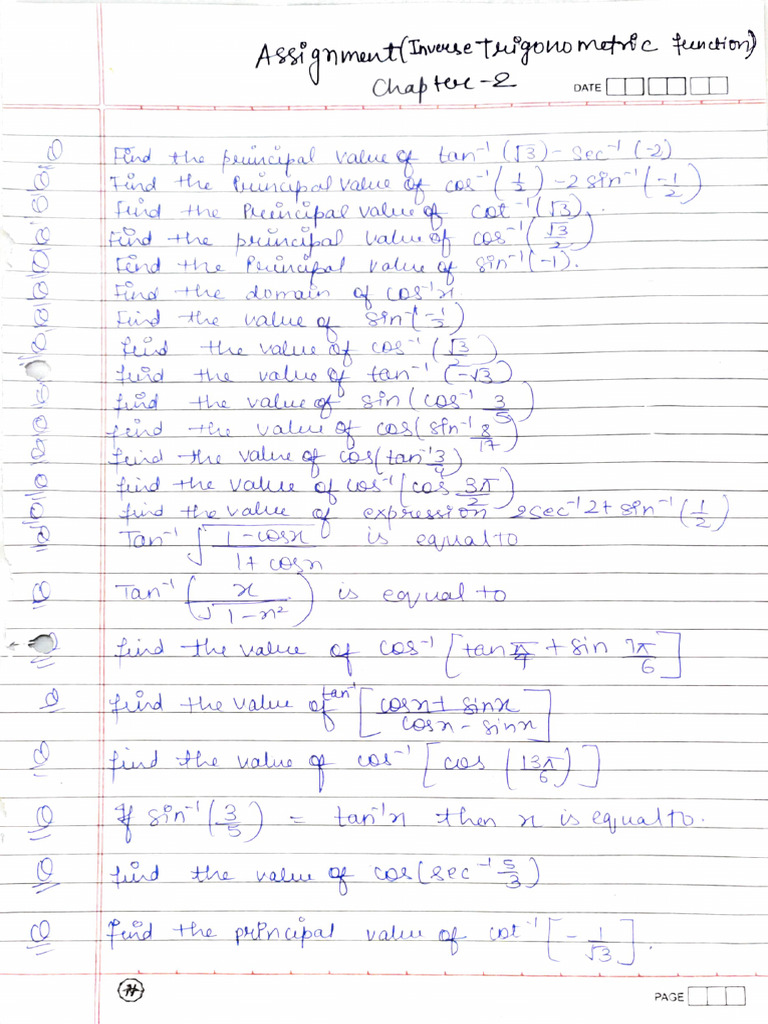 Assignment (Inverse Trigonometric function)
Chapter-2
DATE
Q Find the principal value of tan⁻¹(√3) - sec⁻¹(-2)
Q Find the Principal value of cos⁻¹(1/2) - 2 sin⁻¹(-1/2)
Q Find the Principal value of cot⁻¹(√3).
Q Find the principal value of cos⁻¹(√3/2)
Q Find the Principal value of sin⁻¹(-1).
Q Find the domain of cos⁻¹x
Q Find the value of sin⁻¹(-1/2)
Q find the value of cos⁻¹(√3/2)
Q find the value of tan⁻¹(-√3)
Q find the value of sin(cos⁻¹ 3/5)
Q find the value of cos(sin⁻¹ 8/17)
Q find the value of cos(tan⁻¹ 3/4)
Q find the value of cos⁻¹(cos 3π/2)
Q find the value of expression 2sec⁻¹2 + sin⁻¹(1/2)
Q Tan⁻¹ √(1-cosx / 1+cosx) is equal to
Q Tan⁻¹ (x / √(1-x²)) is equal to
Q find the value of cos⁻¹ [tan π/4 + sin 7π/6]
Q find the value of tan⁻¹ [cosx + sinx / cosx - sinx]
Q find the value of cos⁻¹ [cos (13π/6)]
Q If sin⁻¹(3/5) = tan⁻¹x then x is equal to.
Q find the value of cos(sec⁻¹ 5/3)
Q Find the principal value of cot⁻¹ [-1/√3].
PAGE